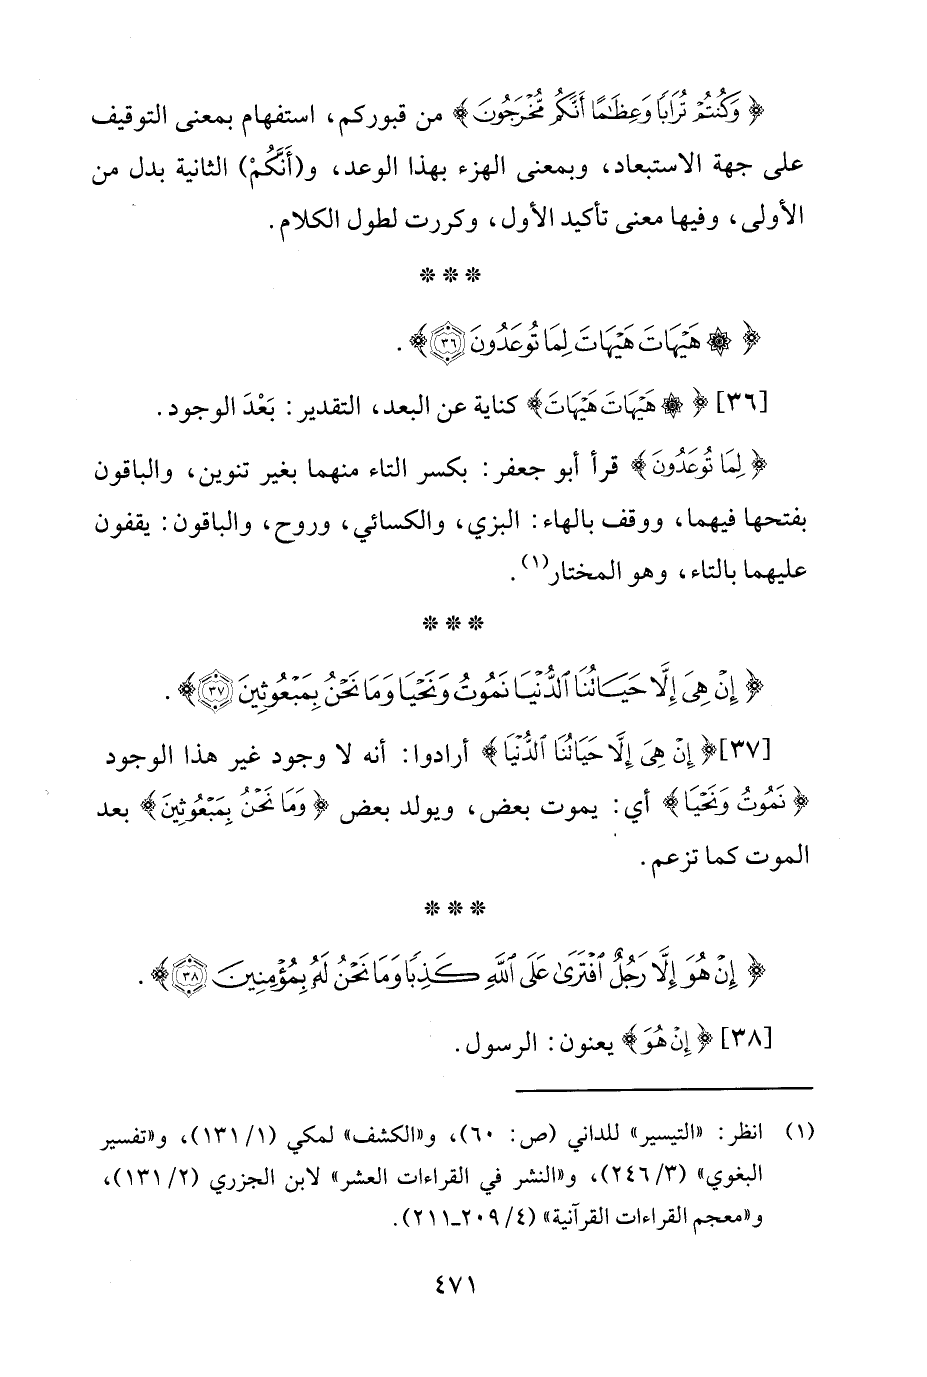 ﴿وَكُنتُمْ تُرَابًا وَعِظَامًا أَنَّكُم مُّخْرَجُونَ﴾ من قبوركم، استفهام بمعنى التوقيف
على جهة الاستبعاد، وبمعنى الهزء بهذا الوعد، و(أَنَّكُمْ) الثانية بدل من
الأولى، وفيها معنى تأكيد الأول، وكررت لطول الكلام.
* * *
﴿۞ هَيْهَاتَ هَيْهَاتَ لِمَا تُوعَدُونَ ٣٦﴾.
[٣٦] ﴿۞ هَيْهَاتَ هَيْهَاتَ﴾ كناية عن البعد، التقدير: بَعْدَ الوجود.
﴿لِمَا تُوعَدُونَ﴾ قرأ أبو جعفر: بكسر التاء منهما بغير تنوين، والباقون
بفتحها فيهما، ووقف بالهاء: البزي، والكسائي، وروح، والباقون: يقفون
عليهما بالتاء، وهو المختار(١).
* * *
﴿إِنْ هِيَ إِلَّا حَيَاتُنَا ٱلدُّنْيَا نَمُوتُ وَنَحْيَا وَمَا نَحْنُ بِمَبْعُوثِينَ ٣٧﴾.
[٣٧] ﴿إِنْ هِيَ إِلَّا حَيَاتُنَا ٱلدُّنْيَا﴾ أرادوا: أنه لا وجود غير هذا الوجود
﴿نَمُوتُ وَنَحْيَا﴾ أي: يموت بعض، ويولد بعض ﴿وَمَا نَحْنُ بِمَبْعُوثِينَ﴾ بعد
الموت كما تزعم.
* * *
﴿إِنْ هُوَ إِلَّا رَجُلٌ ٱفْتَرَىٰ عَلَى ٱللَّهِ كَذِبًا وَمَا نَحْنُ لَهُ بِمُؤْمِنِينَ ٣٨﴾.
[٣٨] ﴿إِنْ هُوَ﴾ يعنون: الرسول.
(١) انظر: «التيسير» للداني (ص: ٦٠)، و«الكشف» لمكي (١/ ١٣١)، و«تفسير
البغوي» (٣/ ٢٤٦)، و«النشر في القراءات العشر» لابن الجزري (٢/ ١٣١)،
و«معجم القراءات القرآنية» (٤/ ٢٠٩ـ٢١١).
٤٧١